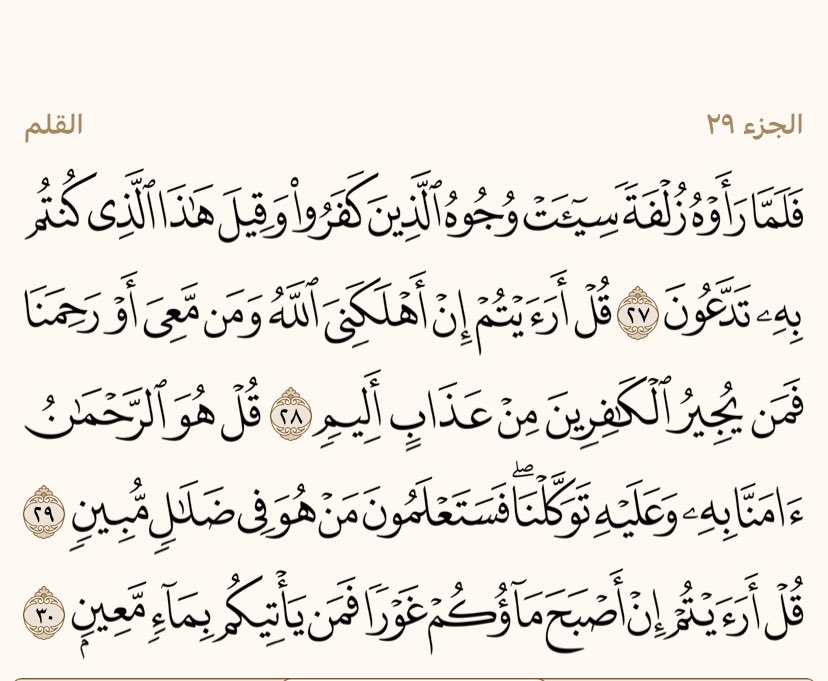 الجزء ٢٩
القلم
فَلَمَّا رَأَوْهُ زُلْفَةً سِيٓـَٔتْ وُجُوهُ ٱلَّذِينَ كَفَرُوا۟ وَقِيلَ هَٰذَا ٱلَّذِى كُنتُم
بِهِۦ تَدَّعُونَ ٢٧ قُلْ أَرَءَيْتُمْ إِنْ أَهْلَكَنِىَ ٱللَّهُ وَمَن مَّعِىَ أَوْ رَحِمَنَا
فَمَن يُجِيرُ ٱلْكَٰفِرِينَ مِنْ عَذَابٍ أَلِيمٍ ٢٨ قُلْ هُوَ ٱلرَّحْمَٰنُ
ءَامَنَّا بِهِۦ وَعَلَيْهِ تَوَكَّلْنَا ۖ فَسَتَعْلَمُونَ مَنْ هُوَ فِى ضَلَٰلٍ مُّبِينٍ ٢٩
قُلْ أَرَءَيْتُمْ إِنْ أَصْبَحَ مَآؤُكُمْ غَوْرًا فَمَن يَأْتِيكُم بِمَآءٍ مَّعِينٍۭ ٣٠